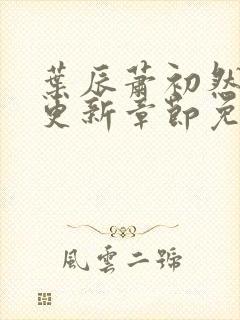 葉辰蕭初然
更新章節免
風雲二號